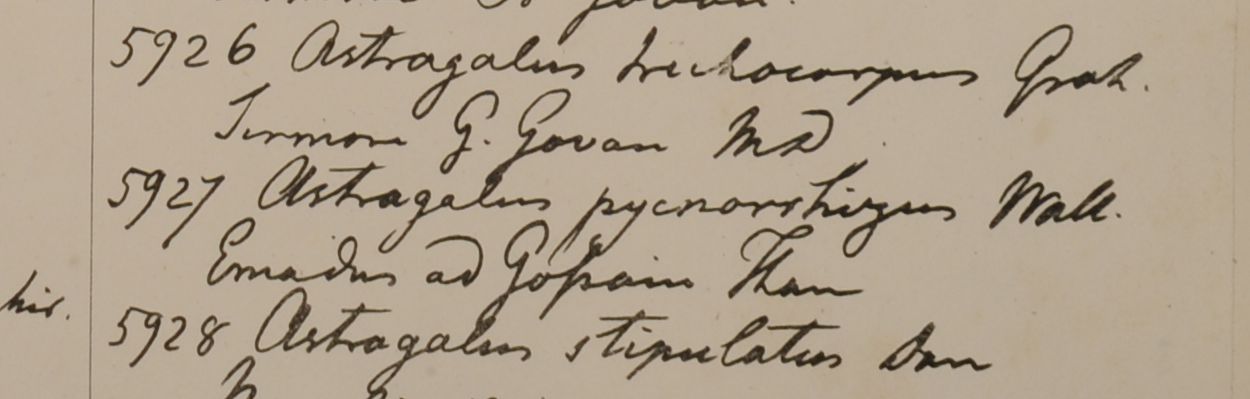 Govan.
5926 Astragalus trichocarpus Grah.
Sirmore G. Govan MD
5927 Astragalus pycnorrhizus Wall.
Emodus ad Goſsain Than
hir.
5928 Astragalus stipulatus Don